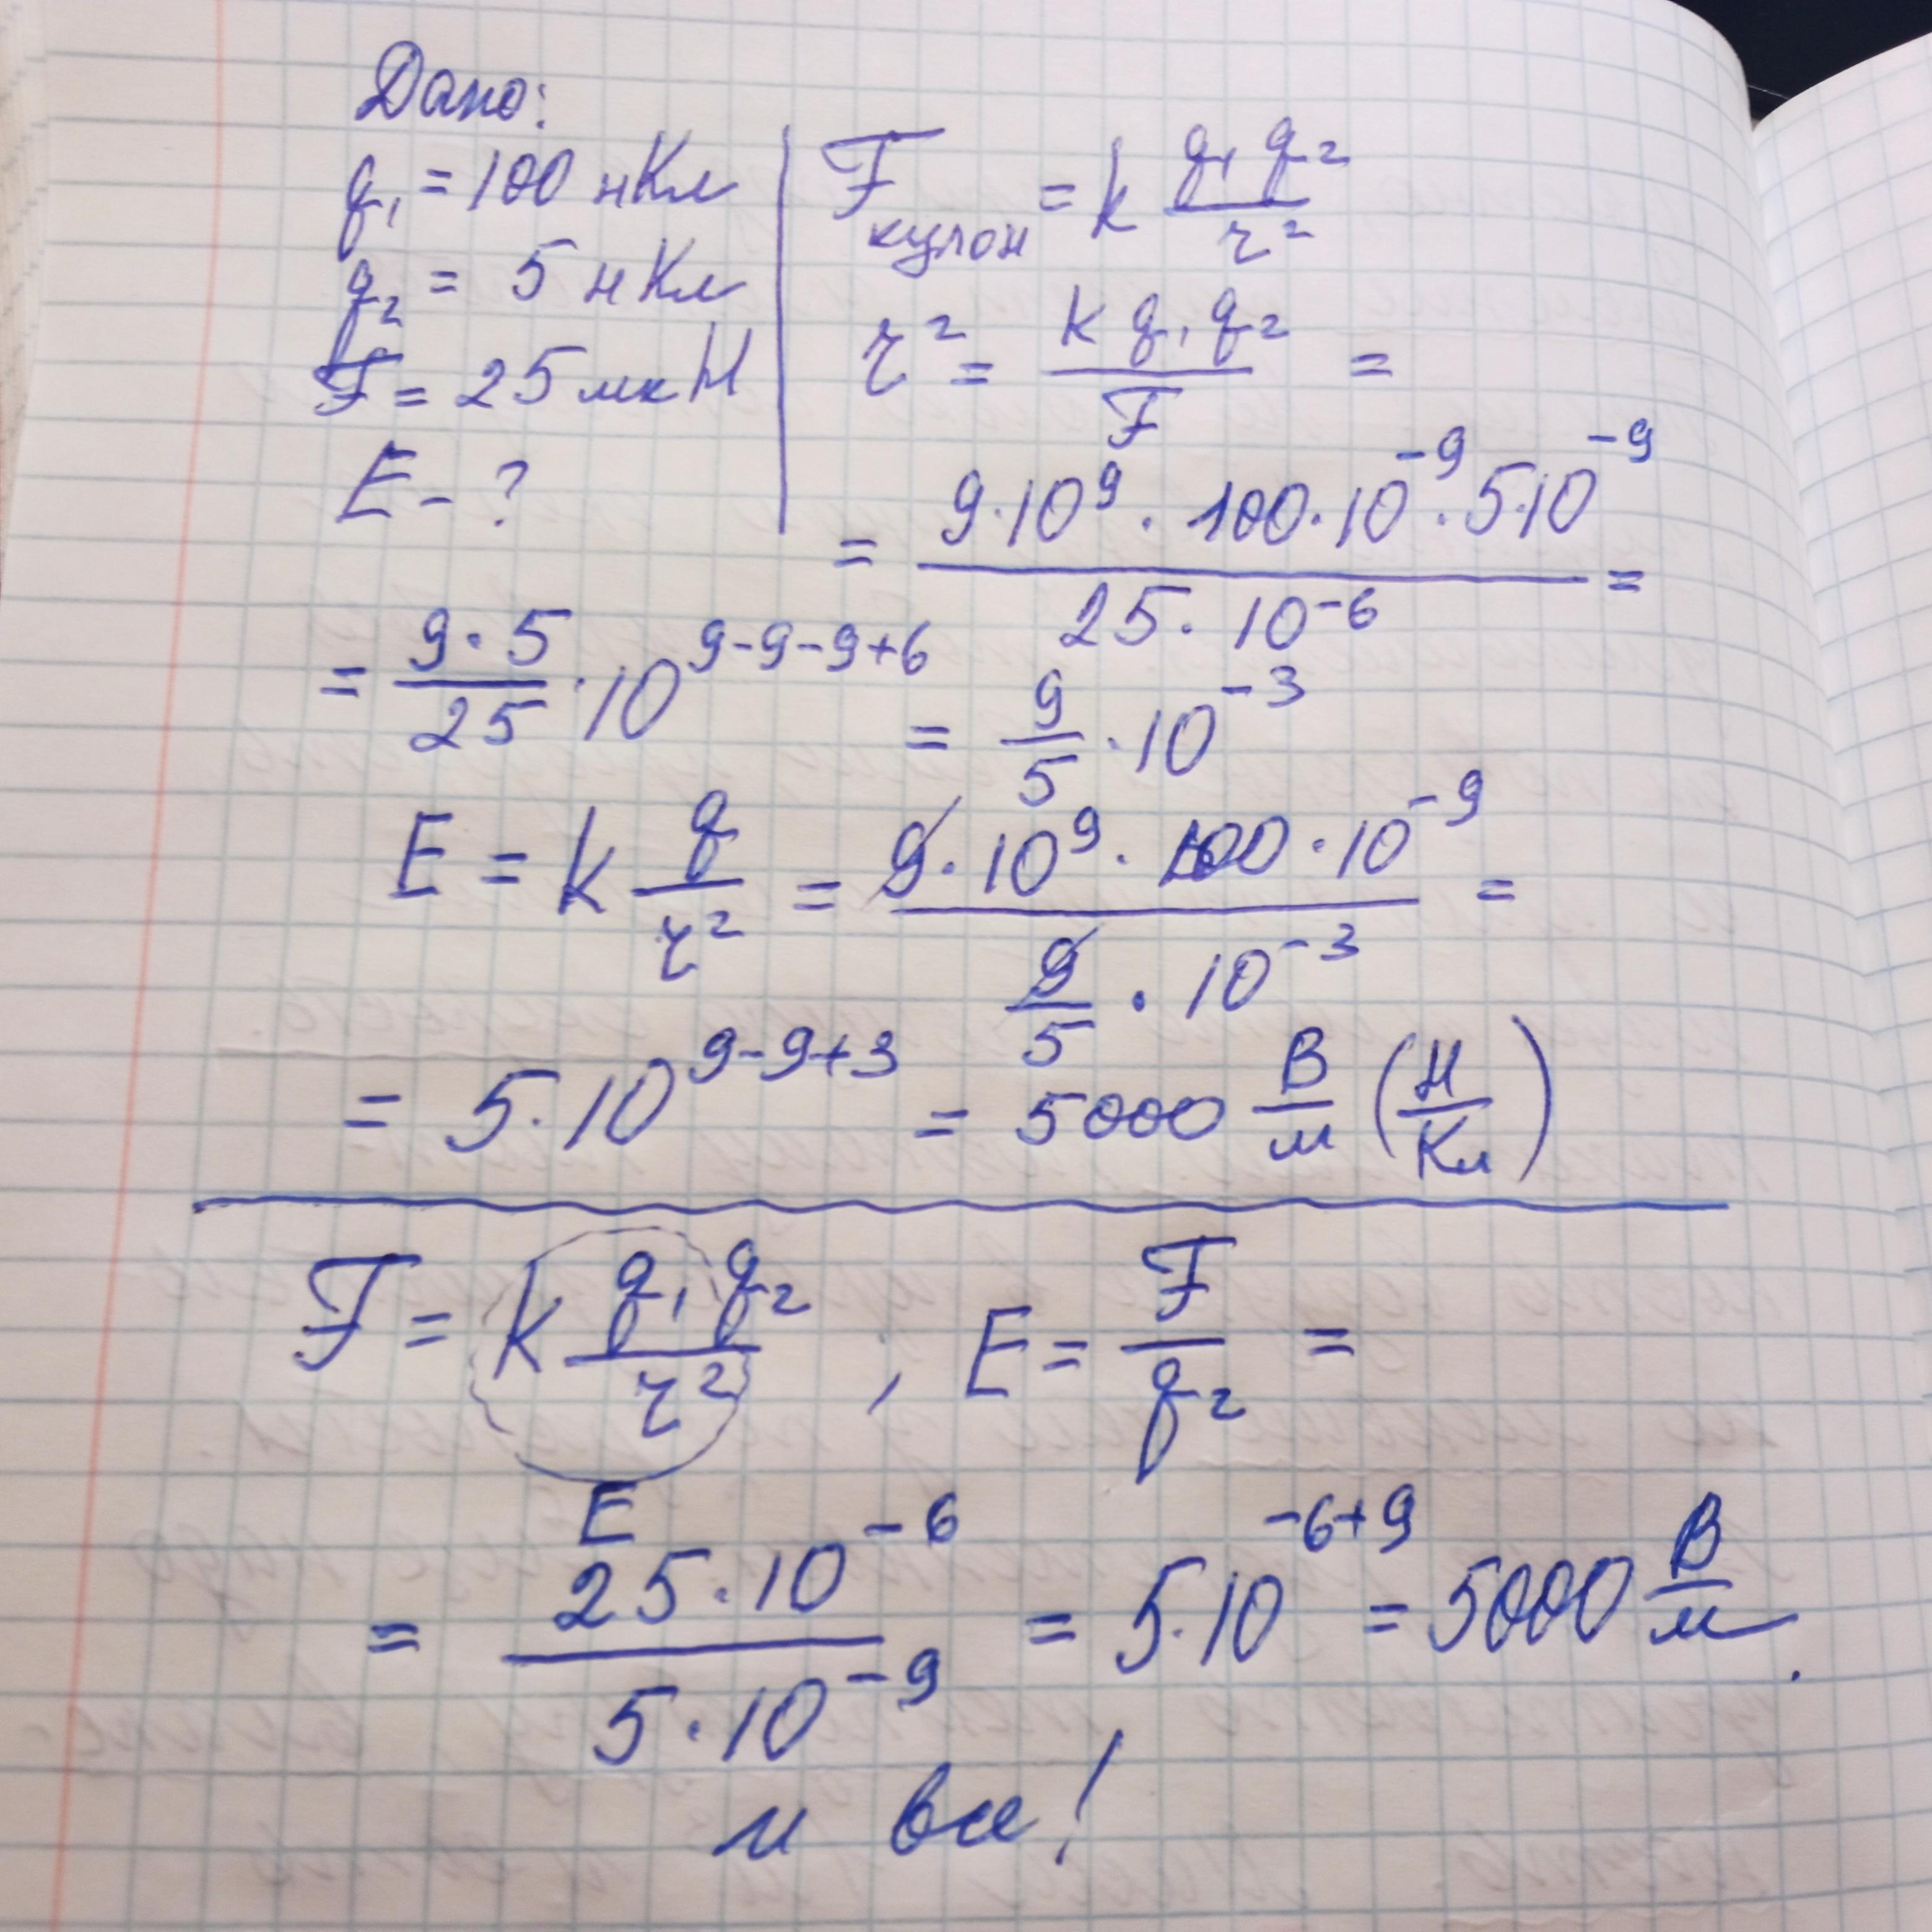 Дано:
q₁ = 100 нКл
q₂ = 5 нКл
F = 25 мкН
E - ?
F кулон = k q₁ q₂ / r²
r² = k q₁ q₂ / F =
= 9·10⁹ · 100·10⁻⁹ · 5·10⁻⁹ / 25·10⁻⁶ =
= 9·5 / 25 · 10⁹⁻⁹⁻⁹⁺⁶ = 9/5 · 10⁻³
E = k q / r² = 9·10⁹ · 100·10⁻⁹ / 9/5 · 10⁻³ =
= 5·10⁹⁻⁹⁺³ = 5000 В/м (Н/Кл)
F = k q₁ q₂ / r² ; E = F / q₂ =
E
= 25·10⁻⁶ / 5·10⁻⁹ = 5·10⁻⁶⁺⁹ = 5000 В/м.
и все!